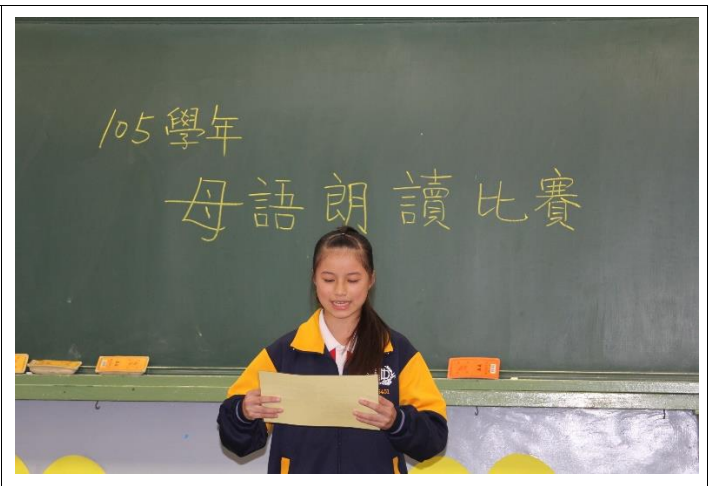 105學年
母語朗讀比賽